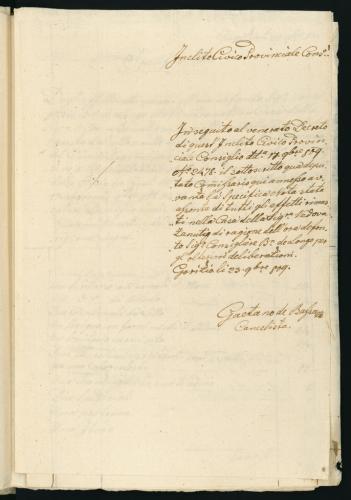 Inclito Civico Provinciale Cons.º
In seguito al venerato Decreto
di quest' Inclito Civico Provin-
ciale Consiglio dd.º 17. 9bre 809
Nº 2478. il sottoscritto qua depu-
tato Comissario qui annesso a v-
vanza la Specifica
di tutti gli effetti rima-
sti nella Casa della Sigr.ª Vedova
di ragione dell' ora defon-
to Sigr. Consigliere Bº de Longo per
gl' ulteriori deliberationi.
Gorizia li 23. 9bre 809.
Gaetano de
Cancelista.